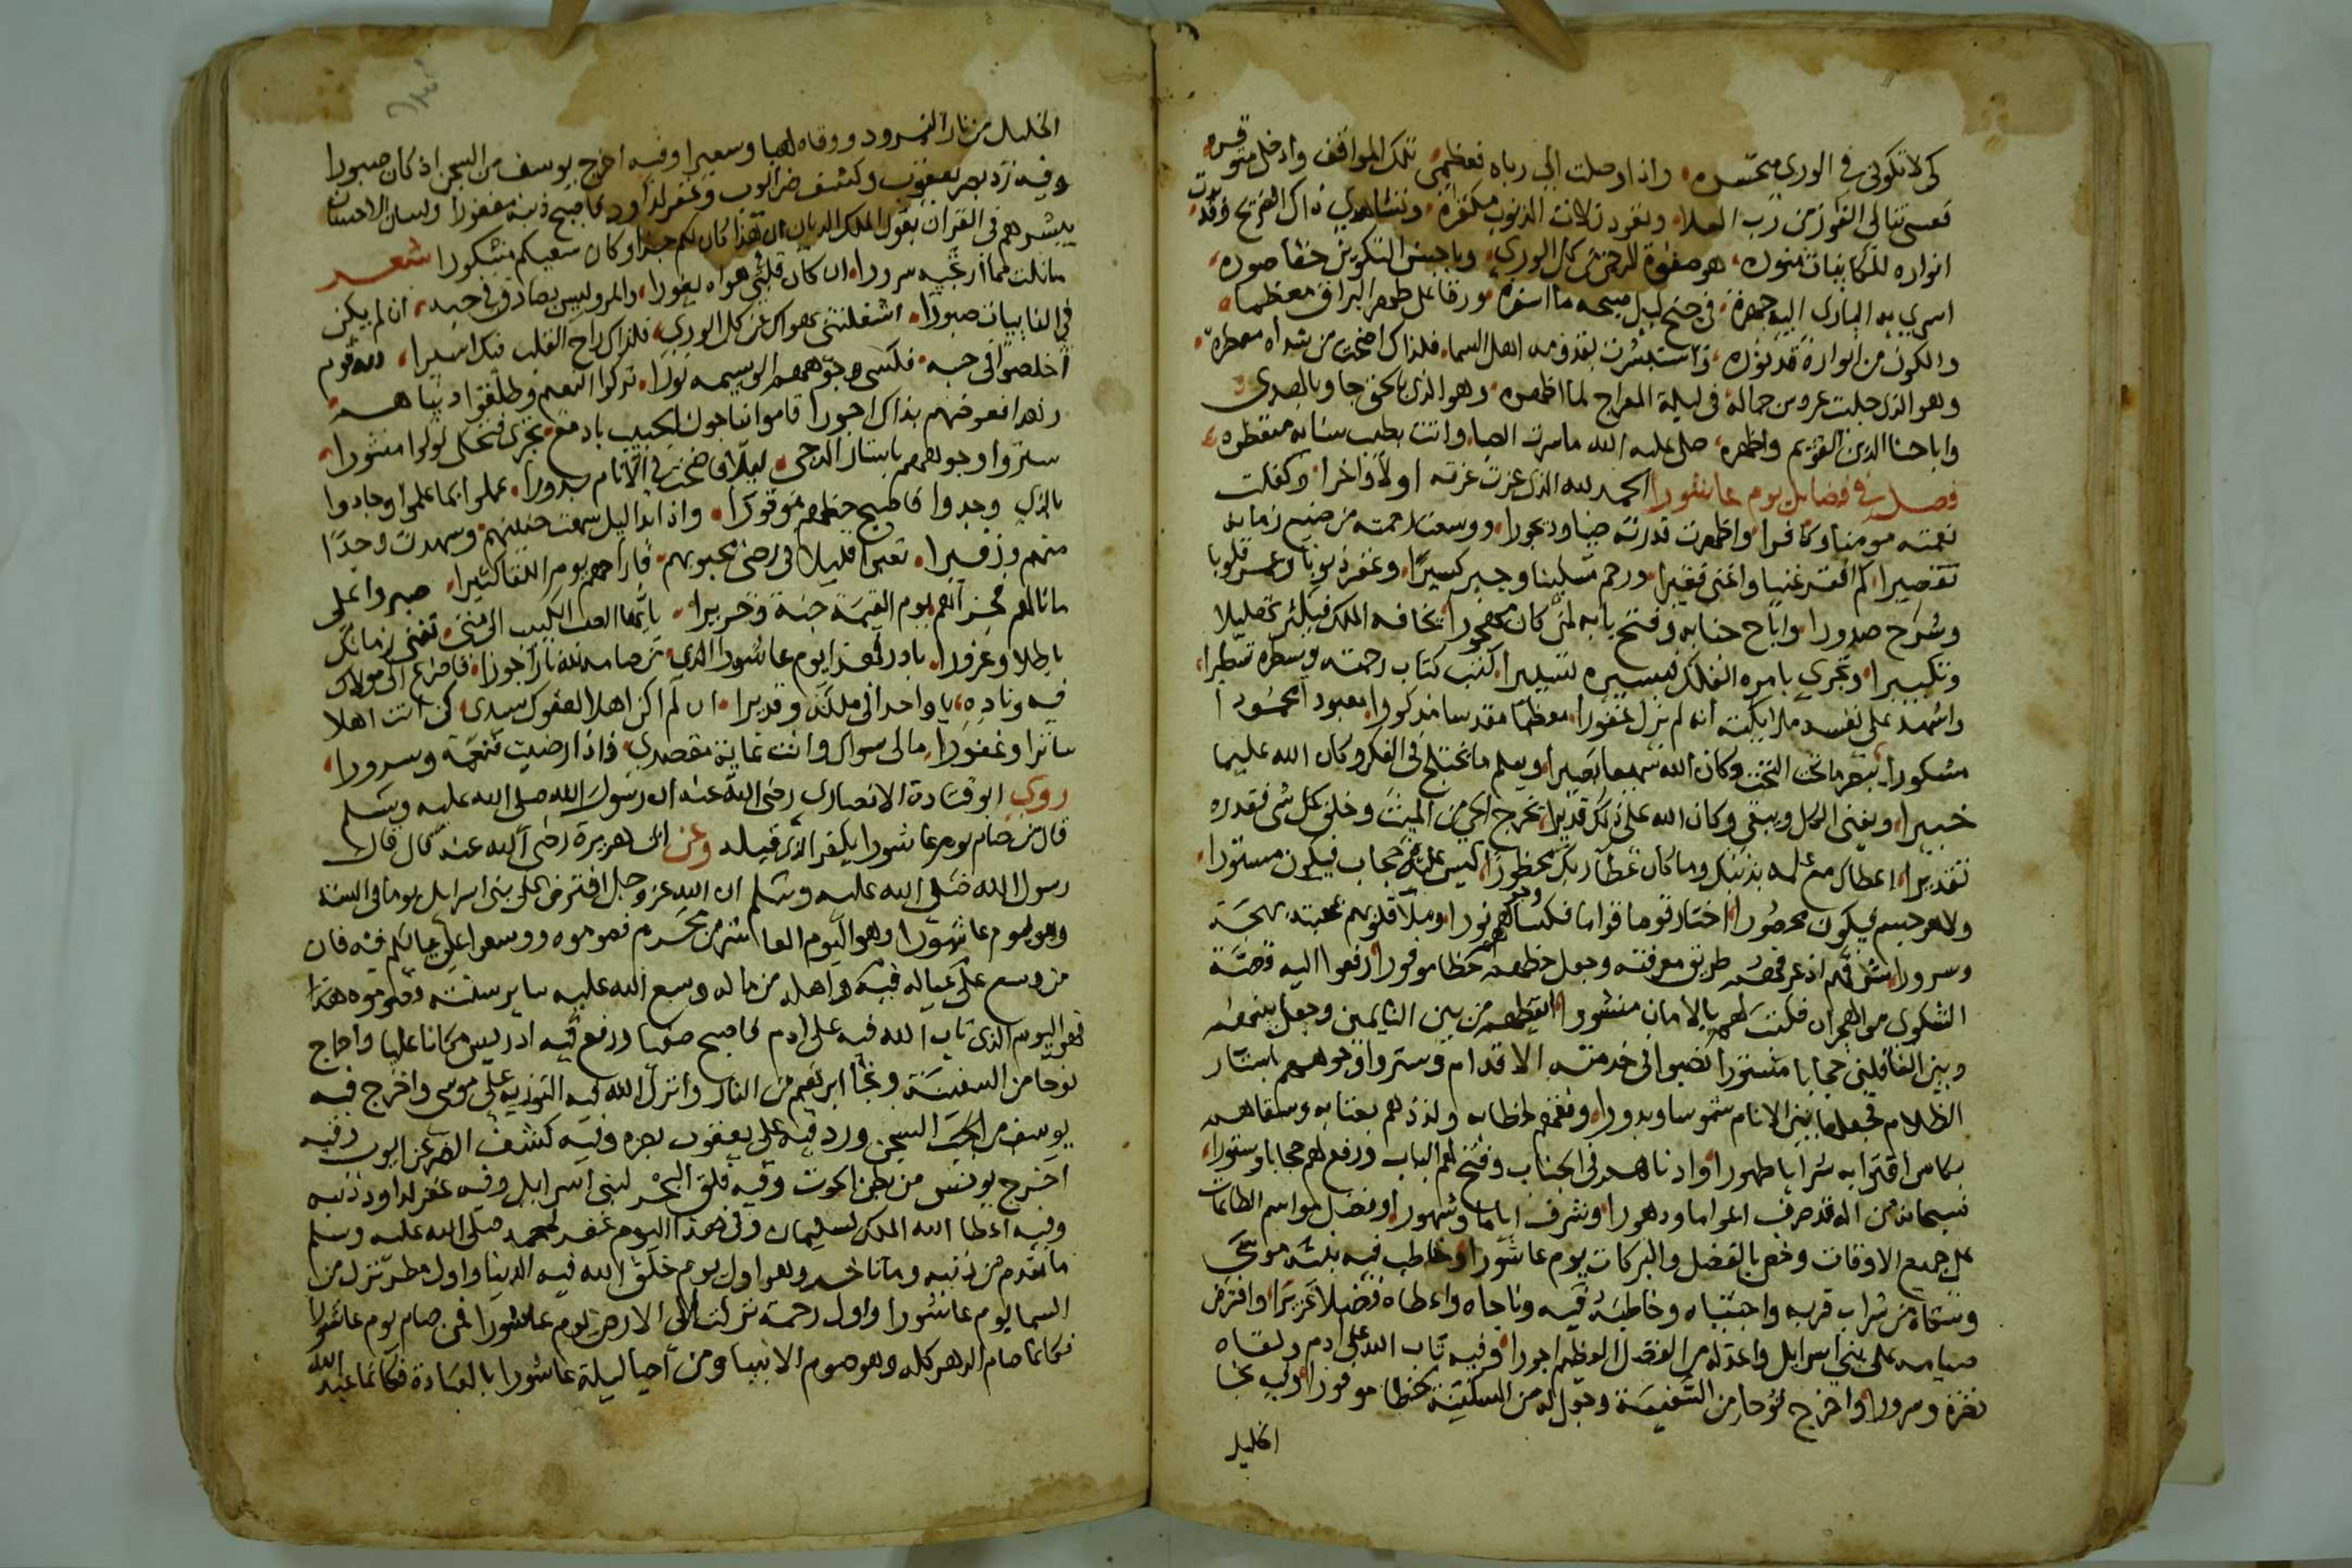 كى لا تكونى فى الورى متحسره واذا وصلت الى رباه فعظمى تلك المواقف وادخل متوقره
فعسى تنالى الفوز من رب العلا وتعود زلات الذنوب مكفره وتشاهدى ذاك الضريح وقد بدت
انواره للكاينات منوره هو صفوة الرحمن من كل الورى
اسرى به البارى اليه جهرة فى جنح ليل صبحه ما اسفره ورقا على ظهر البراق معظما
والكون من انواره قد نوره واستبشرت بقدومه اهل السما فلذاك اضحت من شذاه معطره
وهو الذى جليت عروس جماله فى ليلة المعراج لما اظهره وهو الذى بالحق جا وبالهدى
وابا حنا الدين القويم واظهره صلى عليه الله ما سرت الصبا واتت بطيب ثنايه متعطره
فصل فى فضايل يوم عاشورا الحمد لله الذى عزت عزته اولا واخرا وكفلت
نعمته مومنا وكافرا واظهرت قدرته ضيا وديجورا ووسعت رحمته من ضيع زمانه
تقصيرا كم افقر غنيا واغنى فقيرا ورحم مسكينا وجبر كسيرا وغفر ذنوبا وعمر قلوبا
وشرح صدورا واباح جنابه وفتح بابه لمن كان مهجورا يخافه الملك فيكثر تهليلا
وتكبيرا وتجرى بامره الفلك فيسيره تسييرا كتب كتاب رحمته وسطره تسطيرا
واشهد على نفسه ملايكته انه لم يزل غفورا معظما مقدسا مذكورا معبودا محمودا
مشكورا يبصر ما تحت التخت وكان الله سميعا بصيرا ويعلم ما يختلج فى الفكر وكان الله عليما
خبيرا ويفنى الكل ويبقى وكان الله على ذلك قديرا يخرج الحى من الميت وخلق كل شى فقدره
تقديرا اعطاك مع علمه بذنبك وما كان عطا ربك محظورا ليس عليه حجاب فيكون مستورا
ولا هو جسم فيكون محصورا اختار قوما قواما فكسا وجوههم نورا وملا قلوبهم بمحبته بهجة
وسرورا شرفهم اذ عرفهم طريق معرفته وجعل حظهم حظا موفورا رفعوا اليه قصة
الشكوى من الهجران فكتب لهم بالامان منشورا ايقظهم من بين النايمين وجعل بينهم
وبين الغافلين حجابا مستورا نصبوا فى خدمته الاقدام وستروا وجوههم باستار
الظلام فجعلها بين الانام شموسا وبدورا ونعمهم بخطابه ولذذهم بعتابه وسقاهم
بكاس اقترابه شرابا طهورا وادناهم فى الجناب وفتح لهم الباب ورفع لهم حجابا وستورا
فسبحانه من اله قد صرف اعواما ودهورا وشرف اياما وشهورا وفضل مواسم الطاعات
على جميع الاوقات وخص بالفضل والبركات يوم عاشورا وخاطب فيه نبيه موسى
وسقاه من شراب قربه واجتباه وخاطبه فيه وناجاه واعطاه فضلا غزيرا وافترض
صيامه على بنى اسرايل واعد له من الفضل العظيم اجورا وفيه تاب الله على ادم ولقاه
نضرة وسرورا واخرج نوحا من السفينة وجعل له من السكينة حظا موفورا وفيه نجا
الخليل
الخليل من نار النمرود ووقاه لهبا وسعيرا وفيه اخرج يوسف من السجن اذ كان صبورا
وفيه رد بصر يعقوب وكشف ضر ايوب وغفر لداود فاصبح ذنبه مغفورا ولسان الاحسان
يبشرهم فى القران بقول الملك الديان ان هذا كان لكم جزا وكان سعيكم مشكورا شعر
ما نلت مما ارتجيه سرورا ان كان قلبى عن هواه نفورا والمر وليس بصادق فى حبه ان لم يكن
فى النايبات صبورا اشغلتنى بهواك عن كل الورى فلذاك راح القلب فيك اسيرا لله قوم
اخلصوا فى حبه فكسى وجوههم الوسيمه نورا تركوا النعيم وطلقوا دنياهم
زهدا فعوضهم بذاك اجورا قاموا يناجون الحبيب بادمع تجرى فتحكى لولوا منثورا
ستروا وجوههم باستار الدجى ليلا فاضحت فى الانام بدورا عملوا بما علموا وجادوا
بالذى وجدوا فاصبح حظهم موفورا واذا بدا ليل سمعت حنينهم وشهدت وجدا
منهم وزفيرا تعبوا قليلا فى رضى محبوبهم فاراحهم يوم اللقا كثيرا صبروا على
ما نالهم فجزاهم يوم القيمة جنة وحريرا يا ايها الصب الكييب الى متى تفنى زمانك
باطلا وغرورا بادر لهذا يوم عاشورا الذى من صامه نال اجورا فاضرع الى مولاك
فيه وناده يا واحدا فى ملكه وقديرا ان لم اكن اهلا لعفوك سيدى كن انت اهلا
ساترا وغفورا مالى سواك وانت غاية مقصدى فاذا رضيت فنعمة وسرورا
روى ابو قتادة الانصارى رضى الله عنه ان رسول الله صلى الله عليه وسلم
قال من صام يوم عاشورا يكفر الذى قبله وعن ابى هريرة رضى الله عنه قال قال
رسول الله صلى الله عليه وسلم ان الله عز وجل افترض على بنى اسرايل يوما فى السنة
وهو يوم عاشورا وهو اليوم العاشر من محرم فصوموه ووسعوا على عيالكم فيه فان
من وسع على عياله فيه واهله من ماله وسع الله عليه ساير سنته وصوموه هذا
فهو اليوم الذى تاب الله فيه على ادم فاصبح صفيا ورفع فيه ادريس مكانا عليا واخرج
نوحا من السفينة ونجا ابرهيم من النار وانزل الله فيه التوريه على موسى واخرج فيه
يوسف من السجن ورد فيه على يعقوب بصره وفيه كشف الضر عن ايوب وفيه
اخرج يونس من بطن الحوت وفيه فلق البحر لبنى اسرايل وفيه غفر لداود ذنبه
وفيه اعطا الله الملك لسليمان وفى هذا اليوم غفر لمحمد صلى الله عليه وسلم
ما تقدم من ذنبه وما تاخر وهو اول يوم خلق الله فيه الدنيا واول مطر نزل من
السما يوم عاشورا واول رحمة نزلت الى الارض يوم عاشورا فمن صام يوم عاشورا
فكانما صام الدهر كله وهو صوم الانبيا ومن احيا ليلة عاشورا بالعبادة فكانما عبد الله